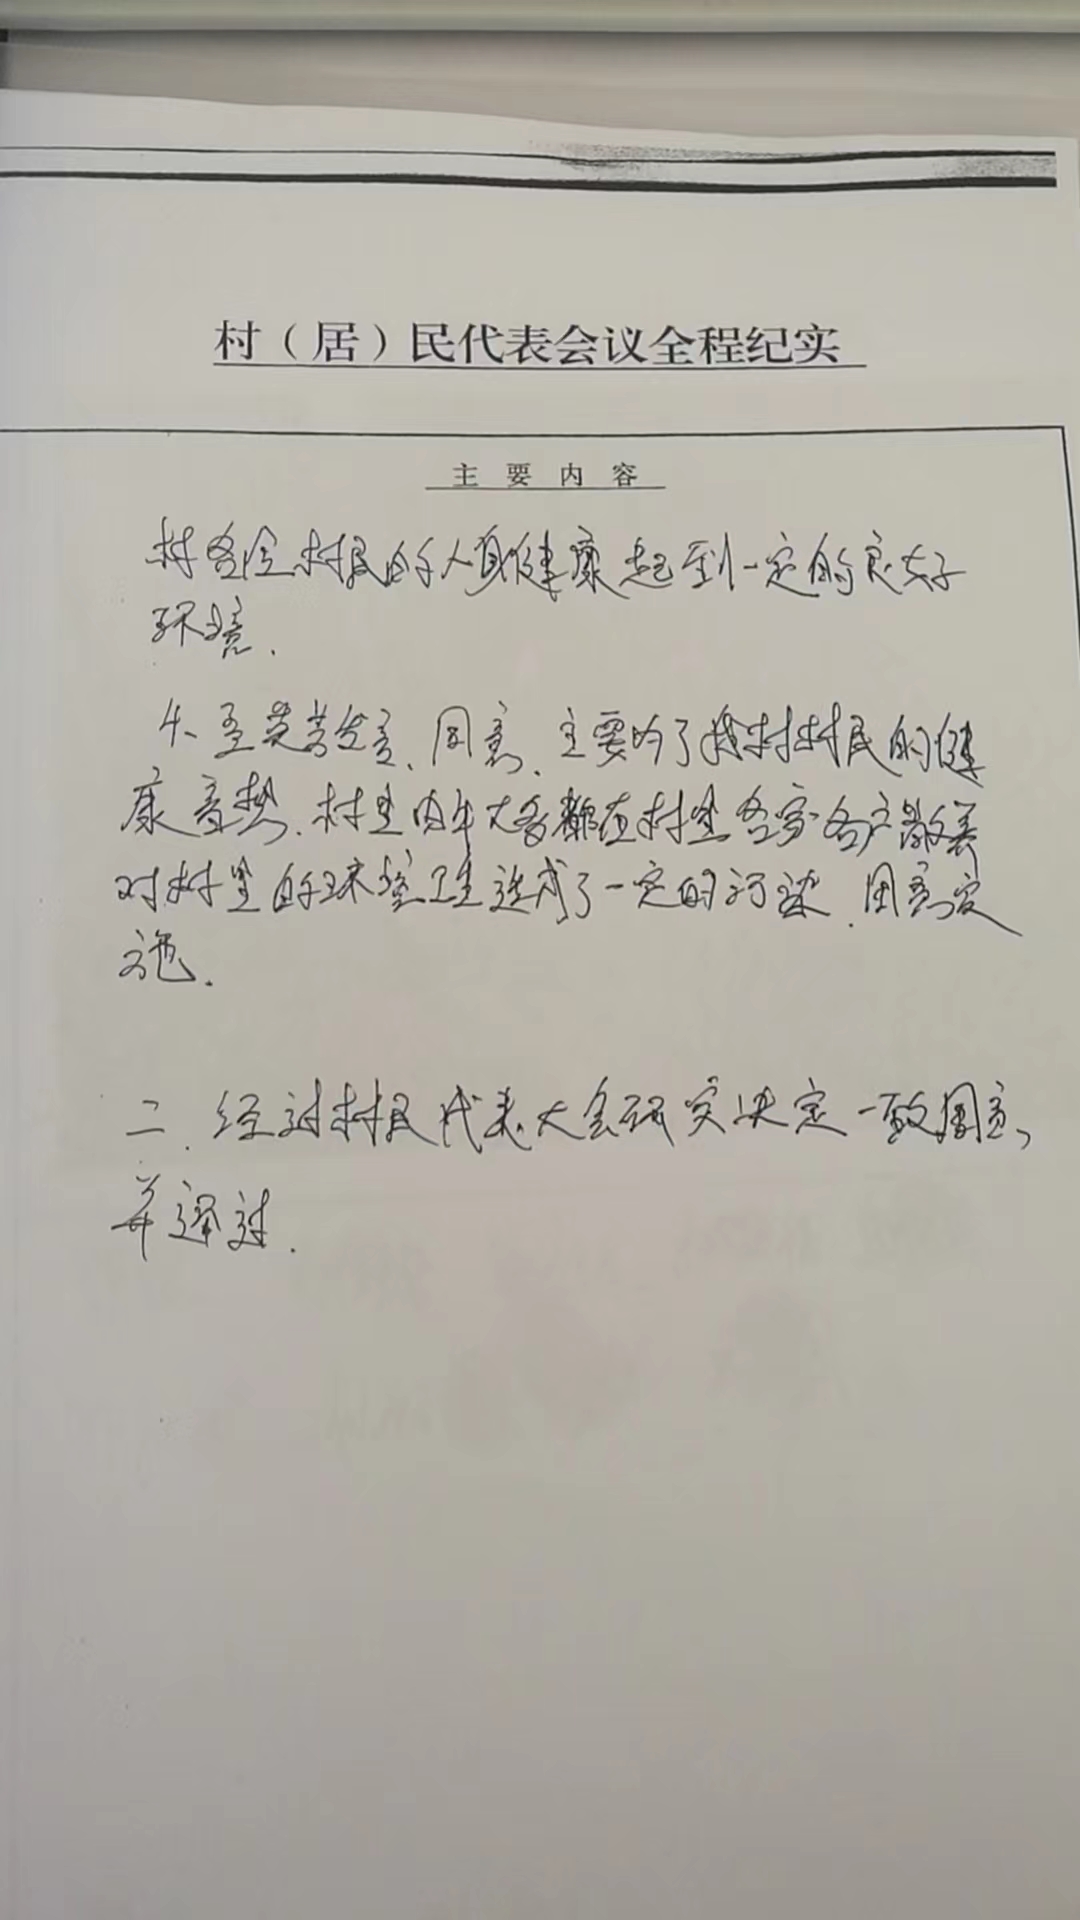 村（居）民代表会议全程纪实
主要内容
村民的人身健康起到一定的良好
环境.
4、发言、同意、主要为了我村村民的健
康着想、村里肉牛大多都在村里各家各户散养
对村里的环境卫生造成了一定的污染、同意实
施.
二、经过村民代表大会研究决定一致同意,
并通过.